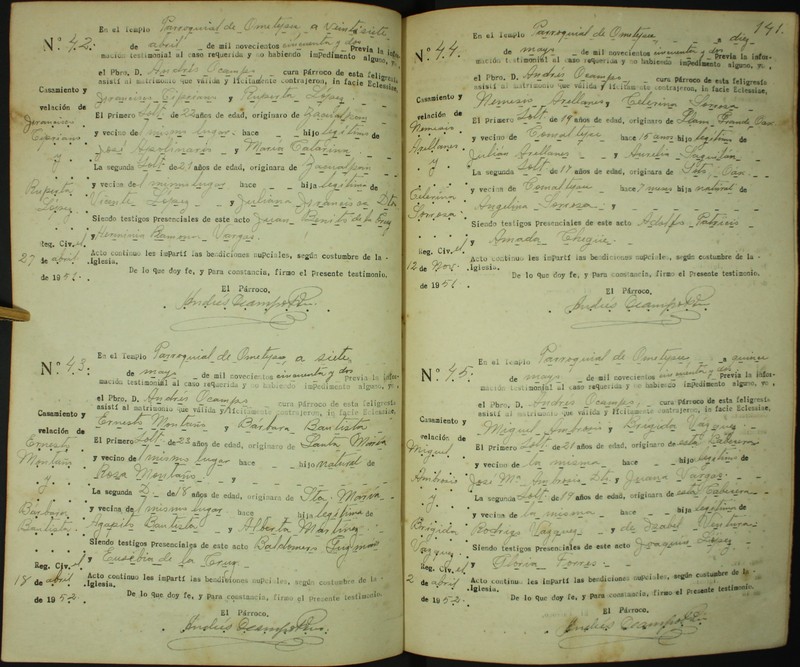 En el Templo Parroquial de Ometepec, a veintisiete
Nº 42: de abril de mil novecientos cincuenta y dos Previa la infor-
mación testimonial al caso requerida y no habiendo impedimento alguno, yo,
el Pbro. D. Andrés Ocampo cura Párroco de esta feligresía
asistí al matrimonio que válida y lícitamente contrajeron, in facie Ecclesiae,
Casamiento y
velación de
Jerónimo Cipriano y Ruperta López
El Primero Solt. de 22 años de edad, originario de
y vecino del mismo lugar hace hijo legítimo de
José y María Catarina
La segunda Solt. de 21 años de edad, originara de
y vecina del mismo lugar hace hija legítima de
Vicente López y Juliana
Siendo testigos Presenciales de este acto Juan Benito de la Cruz
y Herminia Vargas.
Reg. Civ. el
27 de abril
de 1952.
Acto continuo les impartí las bendiciones nupciales, según costumbre de la
Iglesia.
De lo que doy fe, y Para constancia, firmo el Presente testimonio.
El Párroco,
Andrés Ocampo
En el Templo Parroquial de Ometepec, a siete
Nº 43: de mayo de mil novecientos cincuenta y dos Previa la infor-
mación testimonial al caso requerida y no habiendo impedimento alguno, yo,
el Pbro. D. Andrés Ocampo cura Párroco de esta feligresía
asistí al matrimonio que válida y lícitamente contrajeron, in facie Ecclesiae,
Casamiento y
velación de
Ernesto Montaño y Barbara Bautista
El Primero Solt. de 22 años de edad, originario de Santa María
y vecino del mismo lugar hace hijo natural de
Rosa Montaño y
La segunda de 18 años de edad, originara de Sta. María
y vecina del mismo lugar hace hija legítima de
Agapito Bautista y Alberta Martínez
Siendo testigos Presenciales de este acto Baldomero
y Eusebia de la Cruz
Reg. Civ. el
18 de abril
de 1952.
Acto continuo les impartí las bendiciones nupciales, según costumbre de la
Iglesia.
De lo que doy fe, y Para constancia, firmo el Presente testimonio.
El Párroco,
Andrés Ocampo
141.
En el Templo Parroquial de Ometepec a diez
Nº 44. de mayo de mil novecientos cincuenta y dos Previa la infor-
mación testimonial al caso requerida y no habiendo impedimento alguno, yo,
el Pbro. D. Andrés Ocampo cura Párroco de esta feligresía
asistí al matrimonio que válida y lícitamente contrajeron, in facie Ecclesiae,
Casamiento y
velación de
Nemesio Arellanes y Celerina
El Primero Solt. de 19 años de edad, originario de Llano Grande, Oax.
y vecino de hace 15 años hijo legítimo de
Julián Arellanes y Aurelia
La segunda Solt. de 17 años de edad, originara de Oax.
y vecina de hace 7 meses hija natural de
Angelina y
Siendo testigos Presenciales de este acto Adolfo Patricio
y Amada
Reg. Civ. el
12 de Nov.
de 1951
Acto continuo les impartí las bendiciones nupciales, según costumbre de la
Iglesia.
De lo que doy fe, y Para constancia, firmo el Presente testimonio.
El Párroco,
Andrés Ocampo
En el Templo Parroquial de Ometepec a quince
Nº 45: de mayo de mil novecientos cincuenta y dos Previa la infor-
mación testimonial al caso requerida y no habiendo impedimento alguno, yo,
el Pbro. D. Andrés Ocampo, cura Párroco de esta feligresía
asistí al matrimonio que válida y lícitamente contrajeron, in facie Ecclesiae,
Casamiento y
velación de
Miguel Ambrosio y Brígida Vázquez
El Primero Solt. de 21 años de edad, originario de esta Cabecera
y vecino de la misma hace hijo legítimo de
José Ma. Ambrosio y Juana Vargas
La segunda Solt. de 19 años de edad, originara de esta Cabecera
y vecina de la misma hace hija legítima de
Rodrigo Vázquez y de Isabel Ventura
Siendo testigos Presenciales de este acto Joaquín López
y Gloria Torres
Reg. Civ. el
2 de abril
de 1952.
Acto continuo les impartí las bendiciones nupciales, según costumbre de la
Iglesia.
De lo que doy fe, y Para constancia, firmo el Presente testimonio.
El Párroco,
Andrés Ocampo